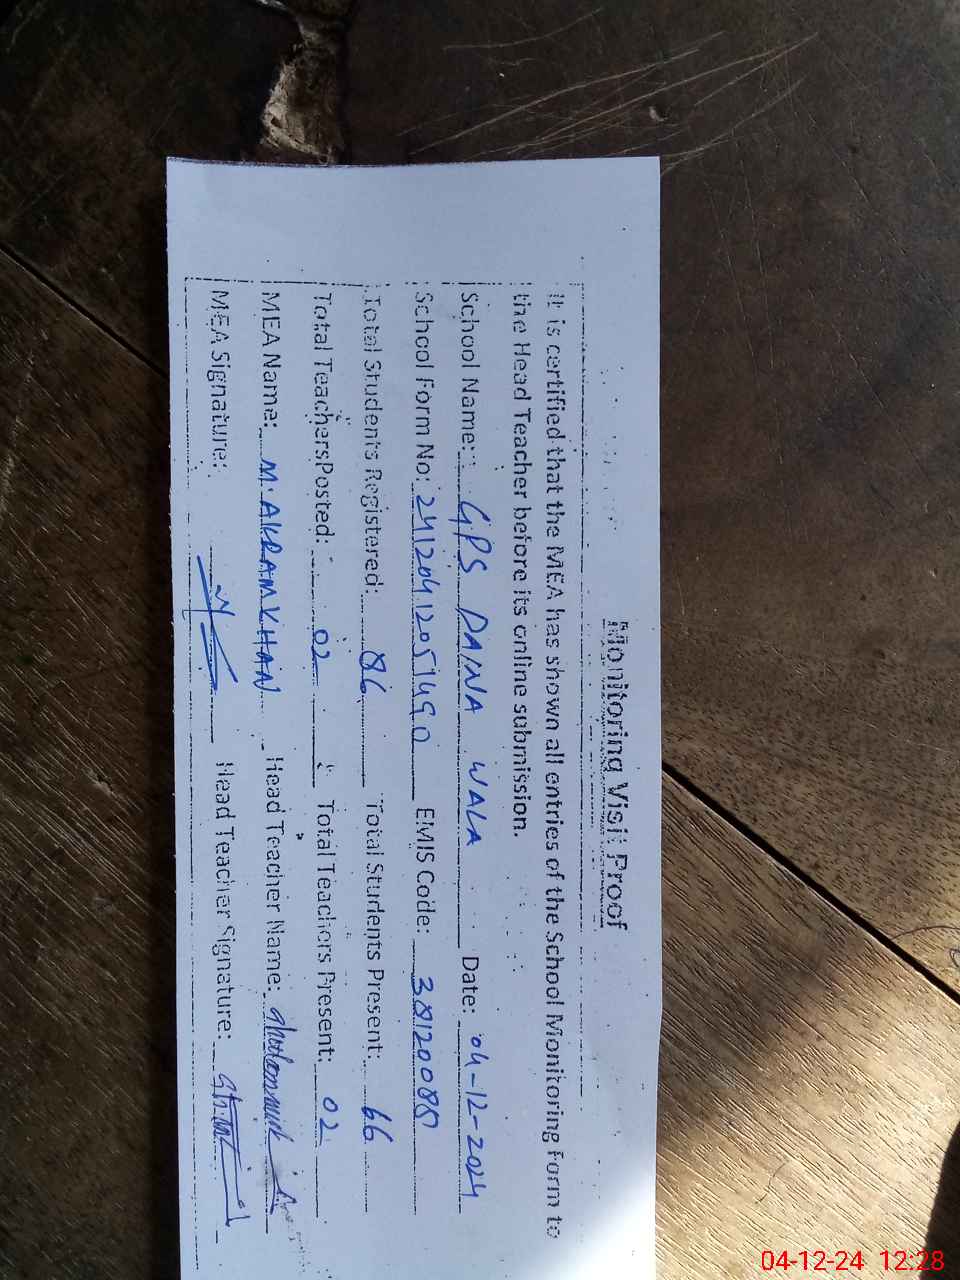 Monitoring Visit Proof
It is certified that the MEA has shown all entries of the School Monitoring Form to
the Head Teacher before its online submission.
School Name: GPS DANNA WALA Date: 04-12-2024
School Form No: EMIS Code:
Total Students Registered: 86 Total Students Present: 66
Total TeachersPosted: 02 Total Teachers Present: 02
MEA Name: M. AKRAM KHAN Head Teacher Name:
MEA Signature: Head Teacher Signature:
04-12-24 12:28